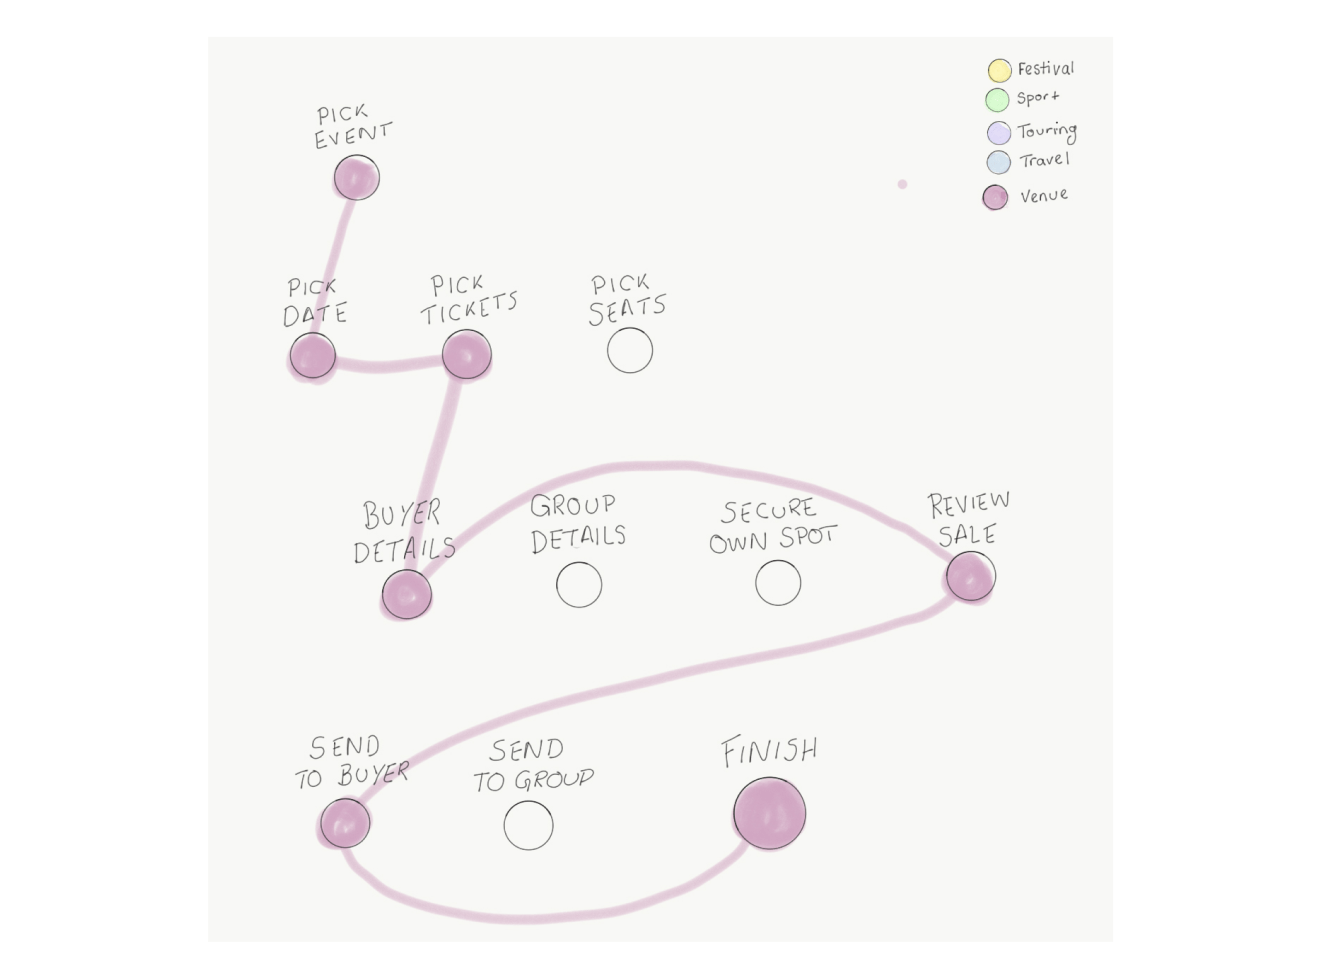 PICK
EVENT
Festival
Sport
Touring
Travel
Venue
PICK
DATE
PICK
TICKETS
PICK
SEATS
BUYER
DETAILS
GROUP
DETAILS
SECURE
OWN SPOT
REVIEW
SALE
SEND
TO BUYER
SEND
TO GROUP
FINISH